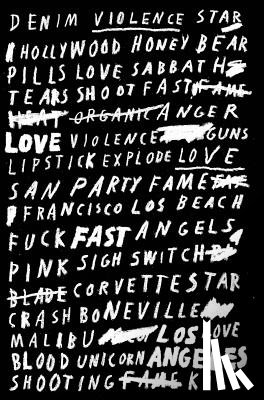 DENIM VIOLENCE STAR
HOLLYWOOD HONEY BEAR
PILLS LOVE SABBATH
TEARS SHOOT FAST FAME
HEAT ORGANIC ANGER
LOVE VIOLENCE GUNS
LIPSTICK EXPLODE LOVE
SAN PARTY FAME
FRANCISCO LOS BEACH
FUCK FAST ANGELS
PINK SIGH SWITCH
BLADE CORVETTE STAR
CRASH BONNEVILLE
MALIBU LOS LOVE
BLOOD UNICORN ANGELES
SHOOTING FAME